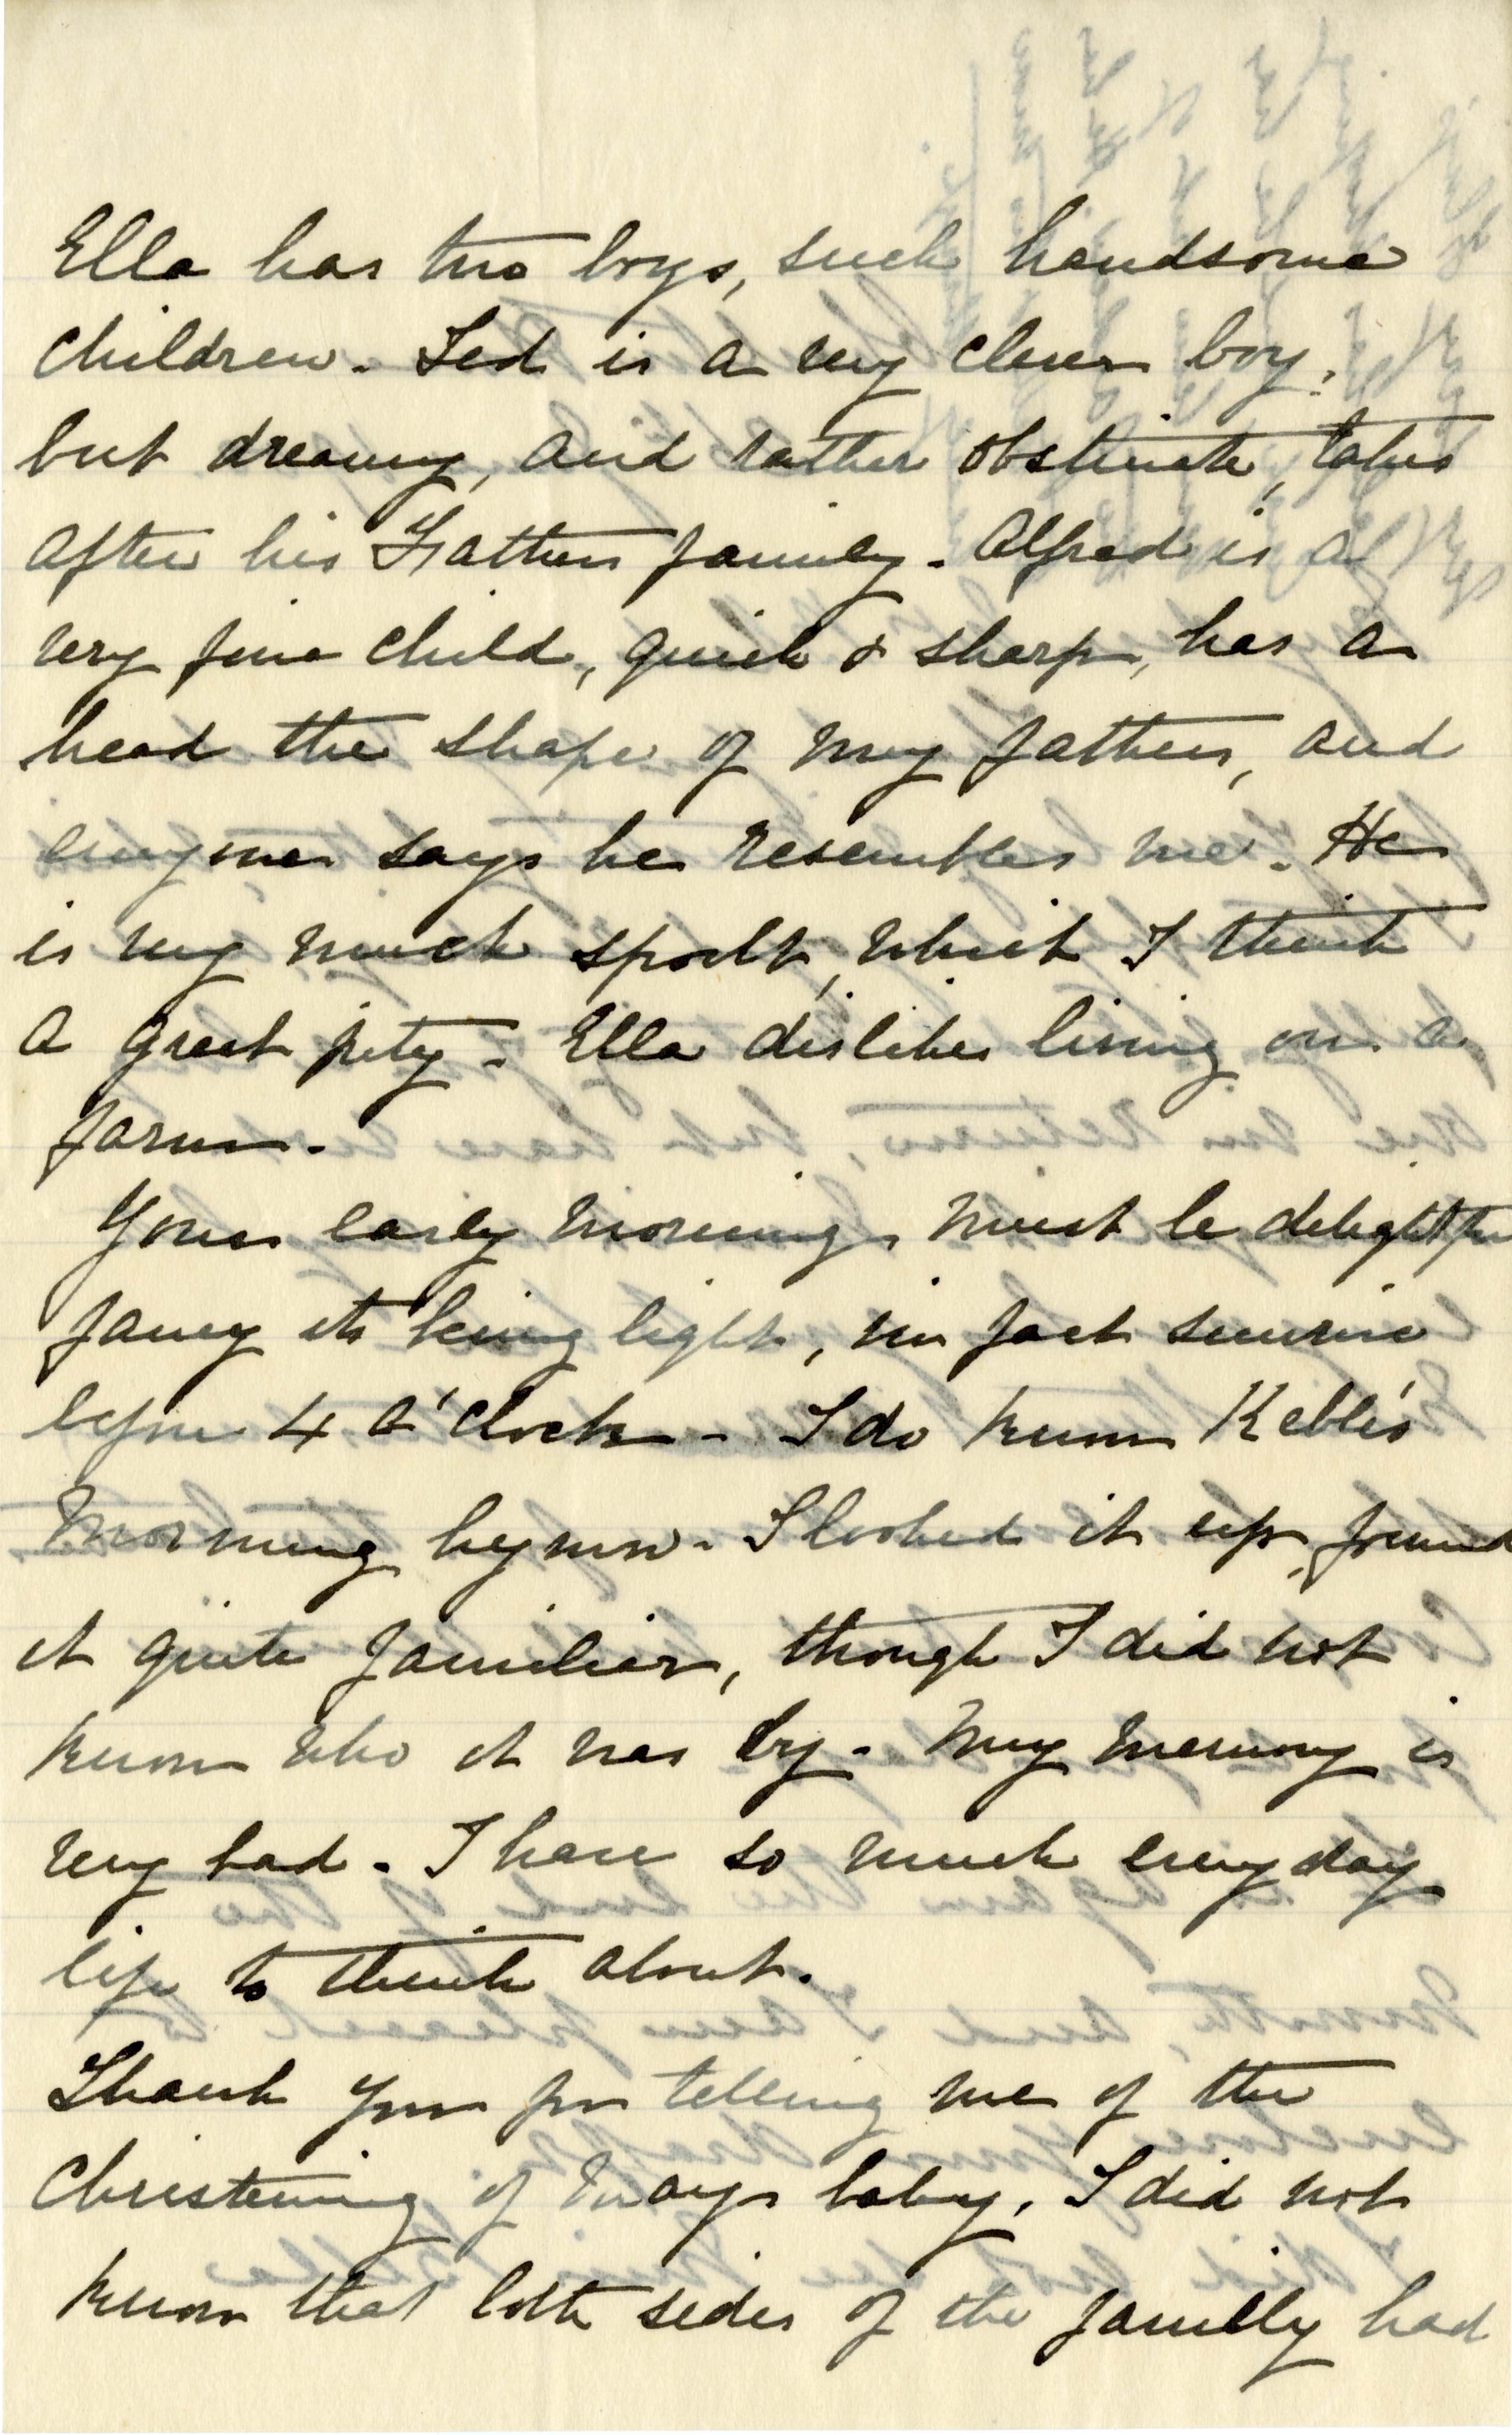 Ella has two boys, such handsome
children. Ted is a very clever boy,
but dreamy, and rather obstinate, takes
after his Fathers family. Alfred is a
very fine child, quick & sharp, has a
head the shape of my fathers, and
everyone says he resembles me. He
is very much spoilt, which I think
a great pity. Ella dislikes living on a
farm.
Your early mornings must be delightful
fancy its being light, in fact sunrise
before 4 o'clock. I do know Keble's
Morning hymn. I looked it up, found
it quite familiar, though I did not
know who it was by. My memory is
very bad. I have so much every day
life to think about.
Thank you for telling me of the
Christening of Mays baby. I did not
know that both sides of the family had